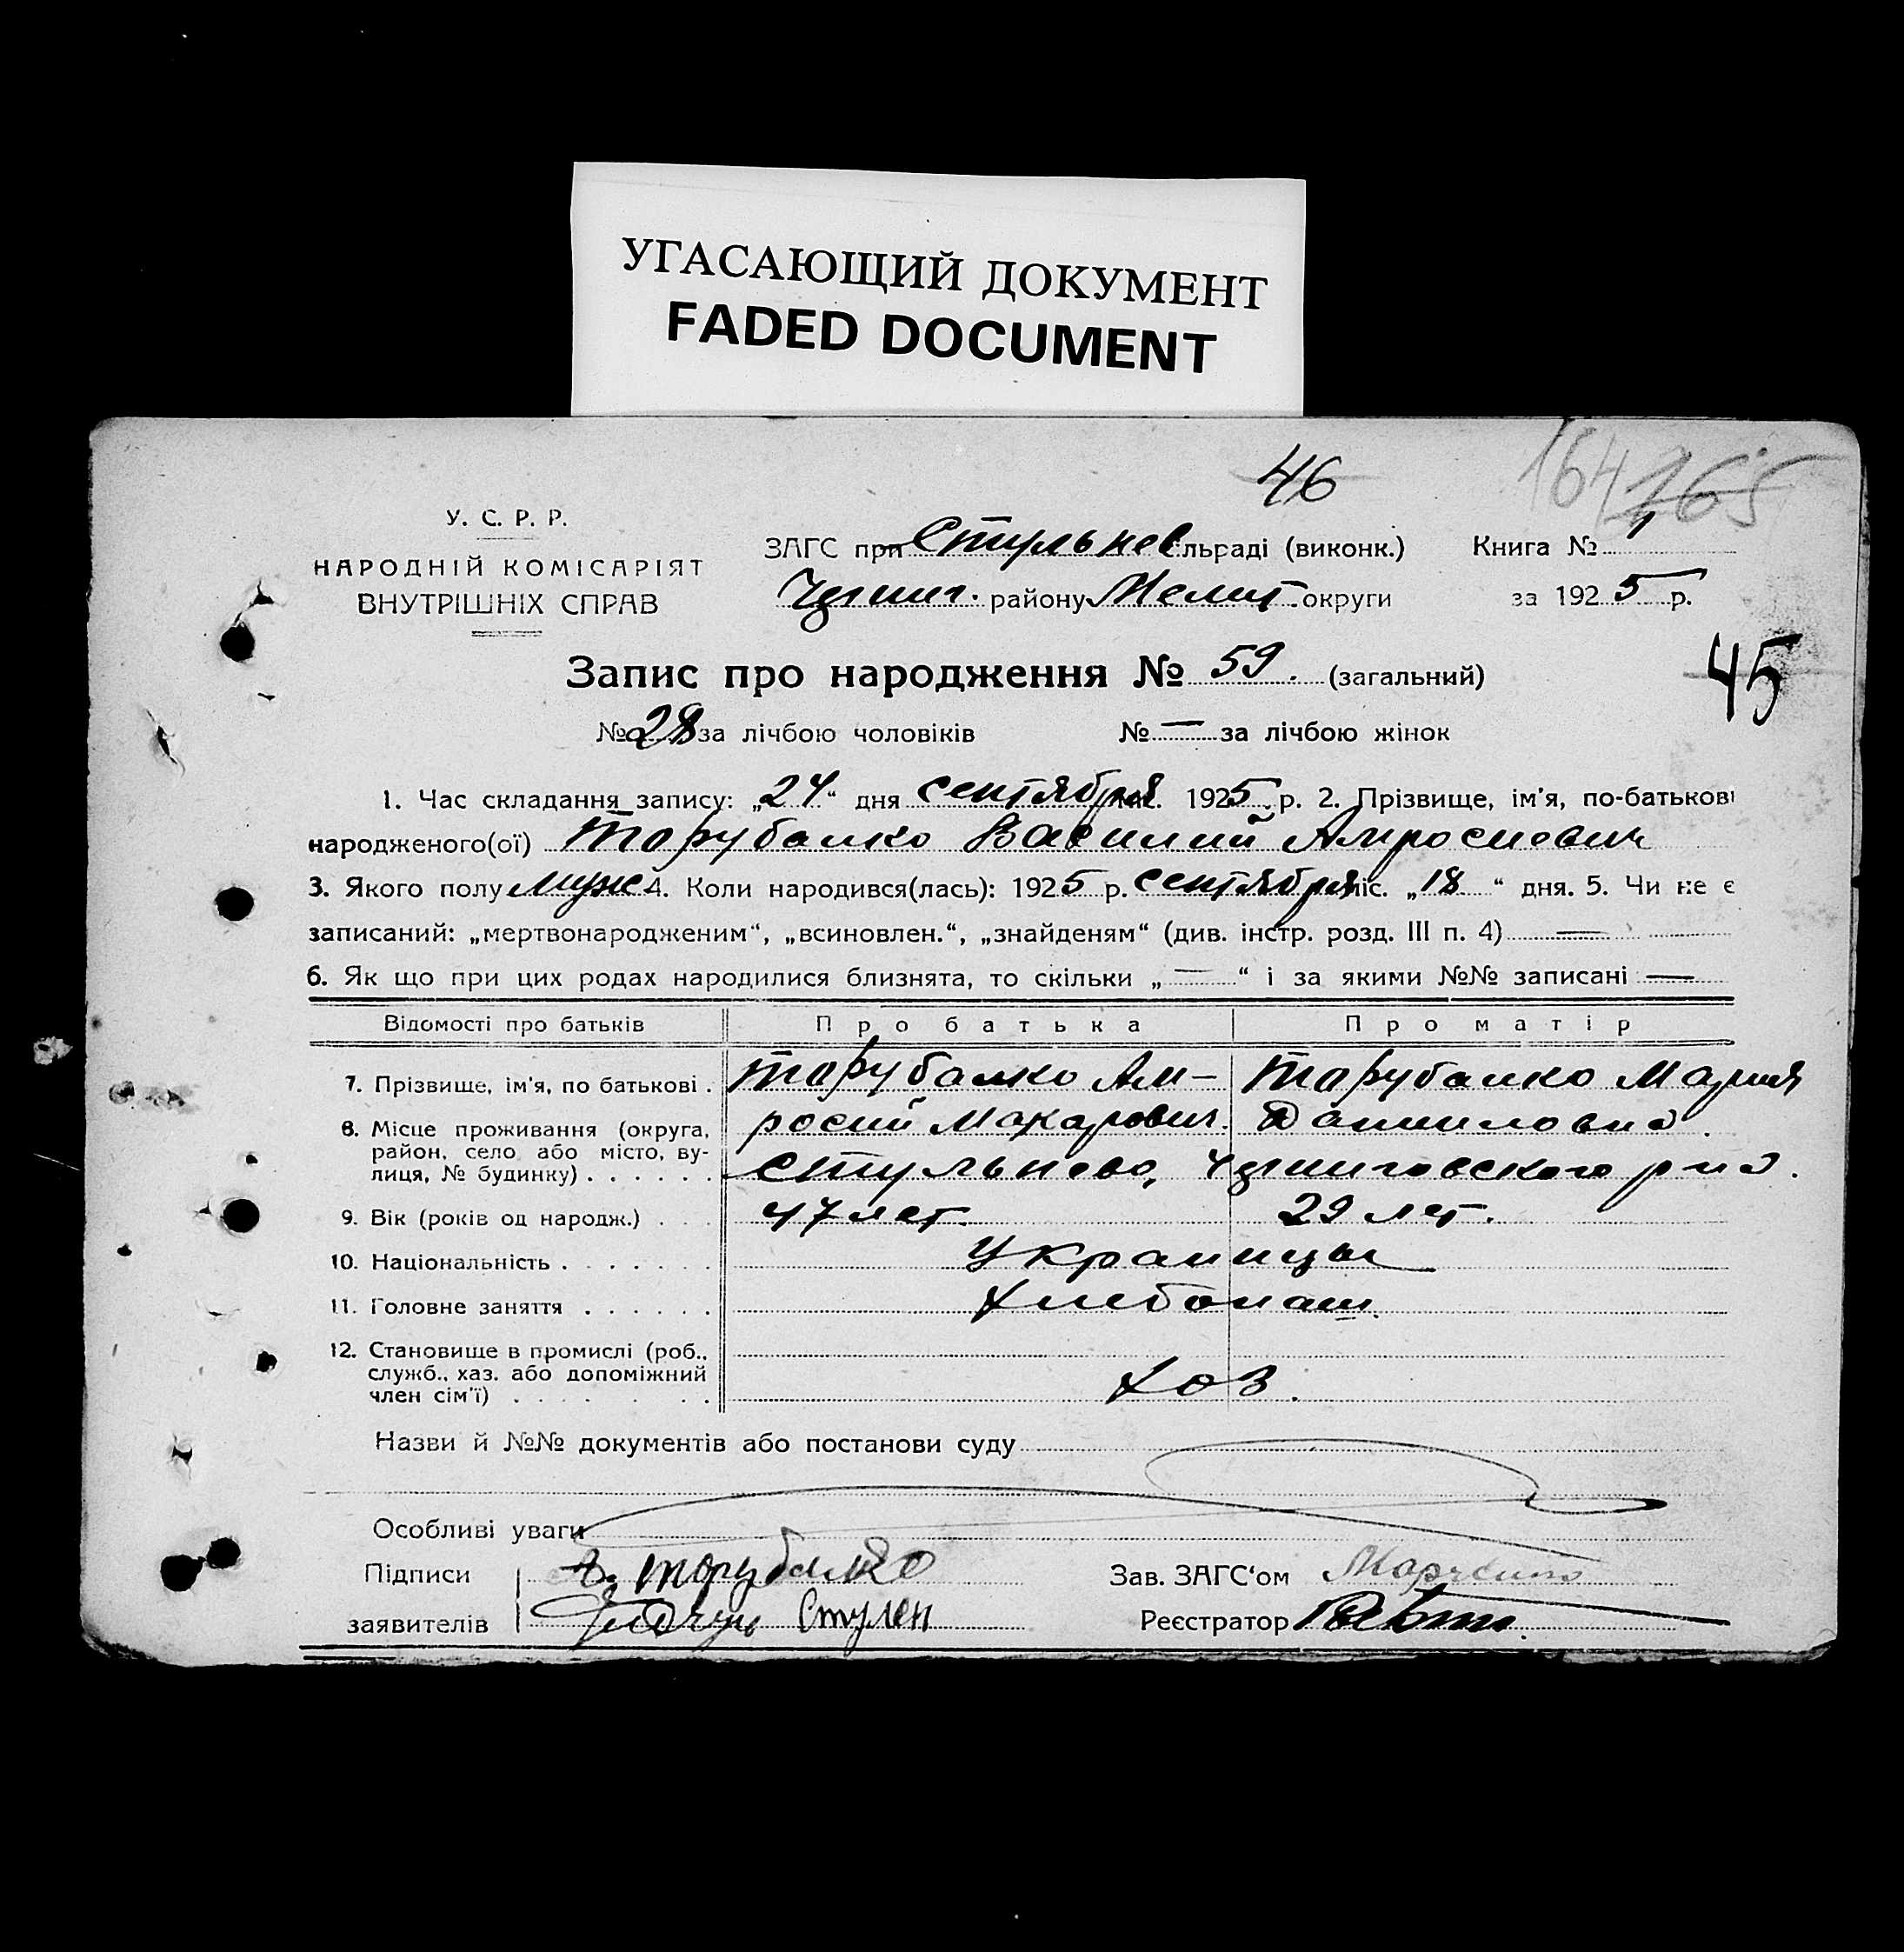 УГАСАЮЩИЙ ДОКУМЕНТ
FADED DOCUMENT
46
164 165
У. С. Р. Р.
НАРОДНІЙ КОМІСАРІЯТ
ВНУТРІШНІХ СПРАВ
ЗАГС при Стульнев сльраді (виконк.) Книга № 1
району Мелит. округи за 1925 р.
45
Запис про народження № 59. (загальний)
№ 28 за лічбою чоловіків № — за лічбою жінок
1. Час складання запису: „24“ дня сентября 1925 р. 2. Прізвище, ім'я, по-батькові
народженого(ої) Торубалко Василий Амросиевич
3. Якого полу муж. 4. Коли народився(лась): 1925 р. сентября міс. „18“ дня. 5. Чи не є
записаний: „мертвонародженим“, „всиновлен.“, „знайденям“ (див. інстр. розд. III п. 4) —
6. Як що при цих родах народилися близнята, то скільки „—“ і за якими №№ записані —
Відомості про батьків Про батька Про матір
7. Прізвище, ім'я, по батькові . Торубалко Ам- Торубалко Мария
росий Макарович. Данииловна.
8. Місце проживання (округа,
район, село або місто, ву-
лиця, № будинку) . . . . . . Стульнево, Черниговского р-на.
9. Вік (років од народж.) . . . 47 лет. 29 лет.
10. Національність . . . . . . . Украинцы
11. Головне заняття . . . . . . Хлебопаш.
12. Становище в промислі (роб.,
служб., хаз. або допоміжний
член сім'ї) . . . . . . . Хоз.
Назви й №№ документів або постанови суду
Особливі уваги
Підписи А. Торубалко Зав. ЗАГС‘ом
заявителів Стулен Реєстратор